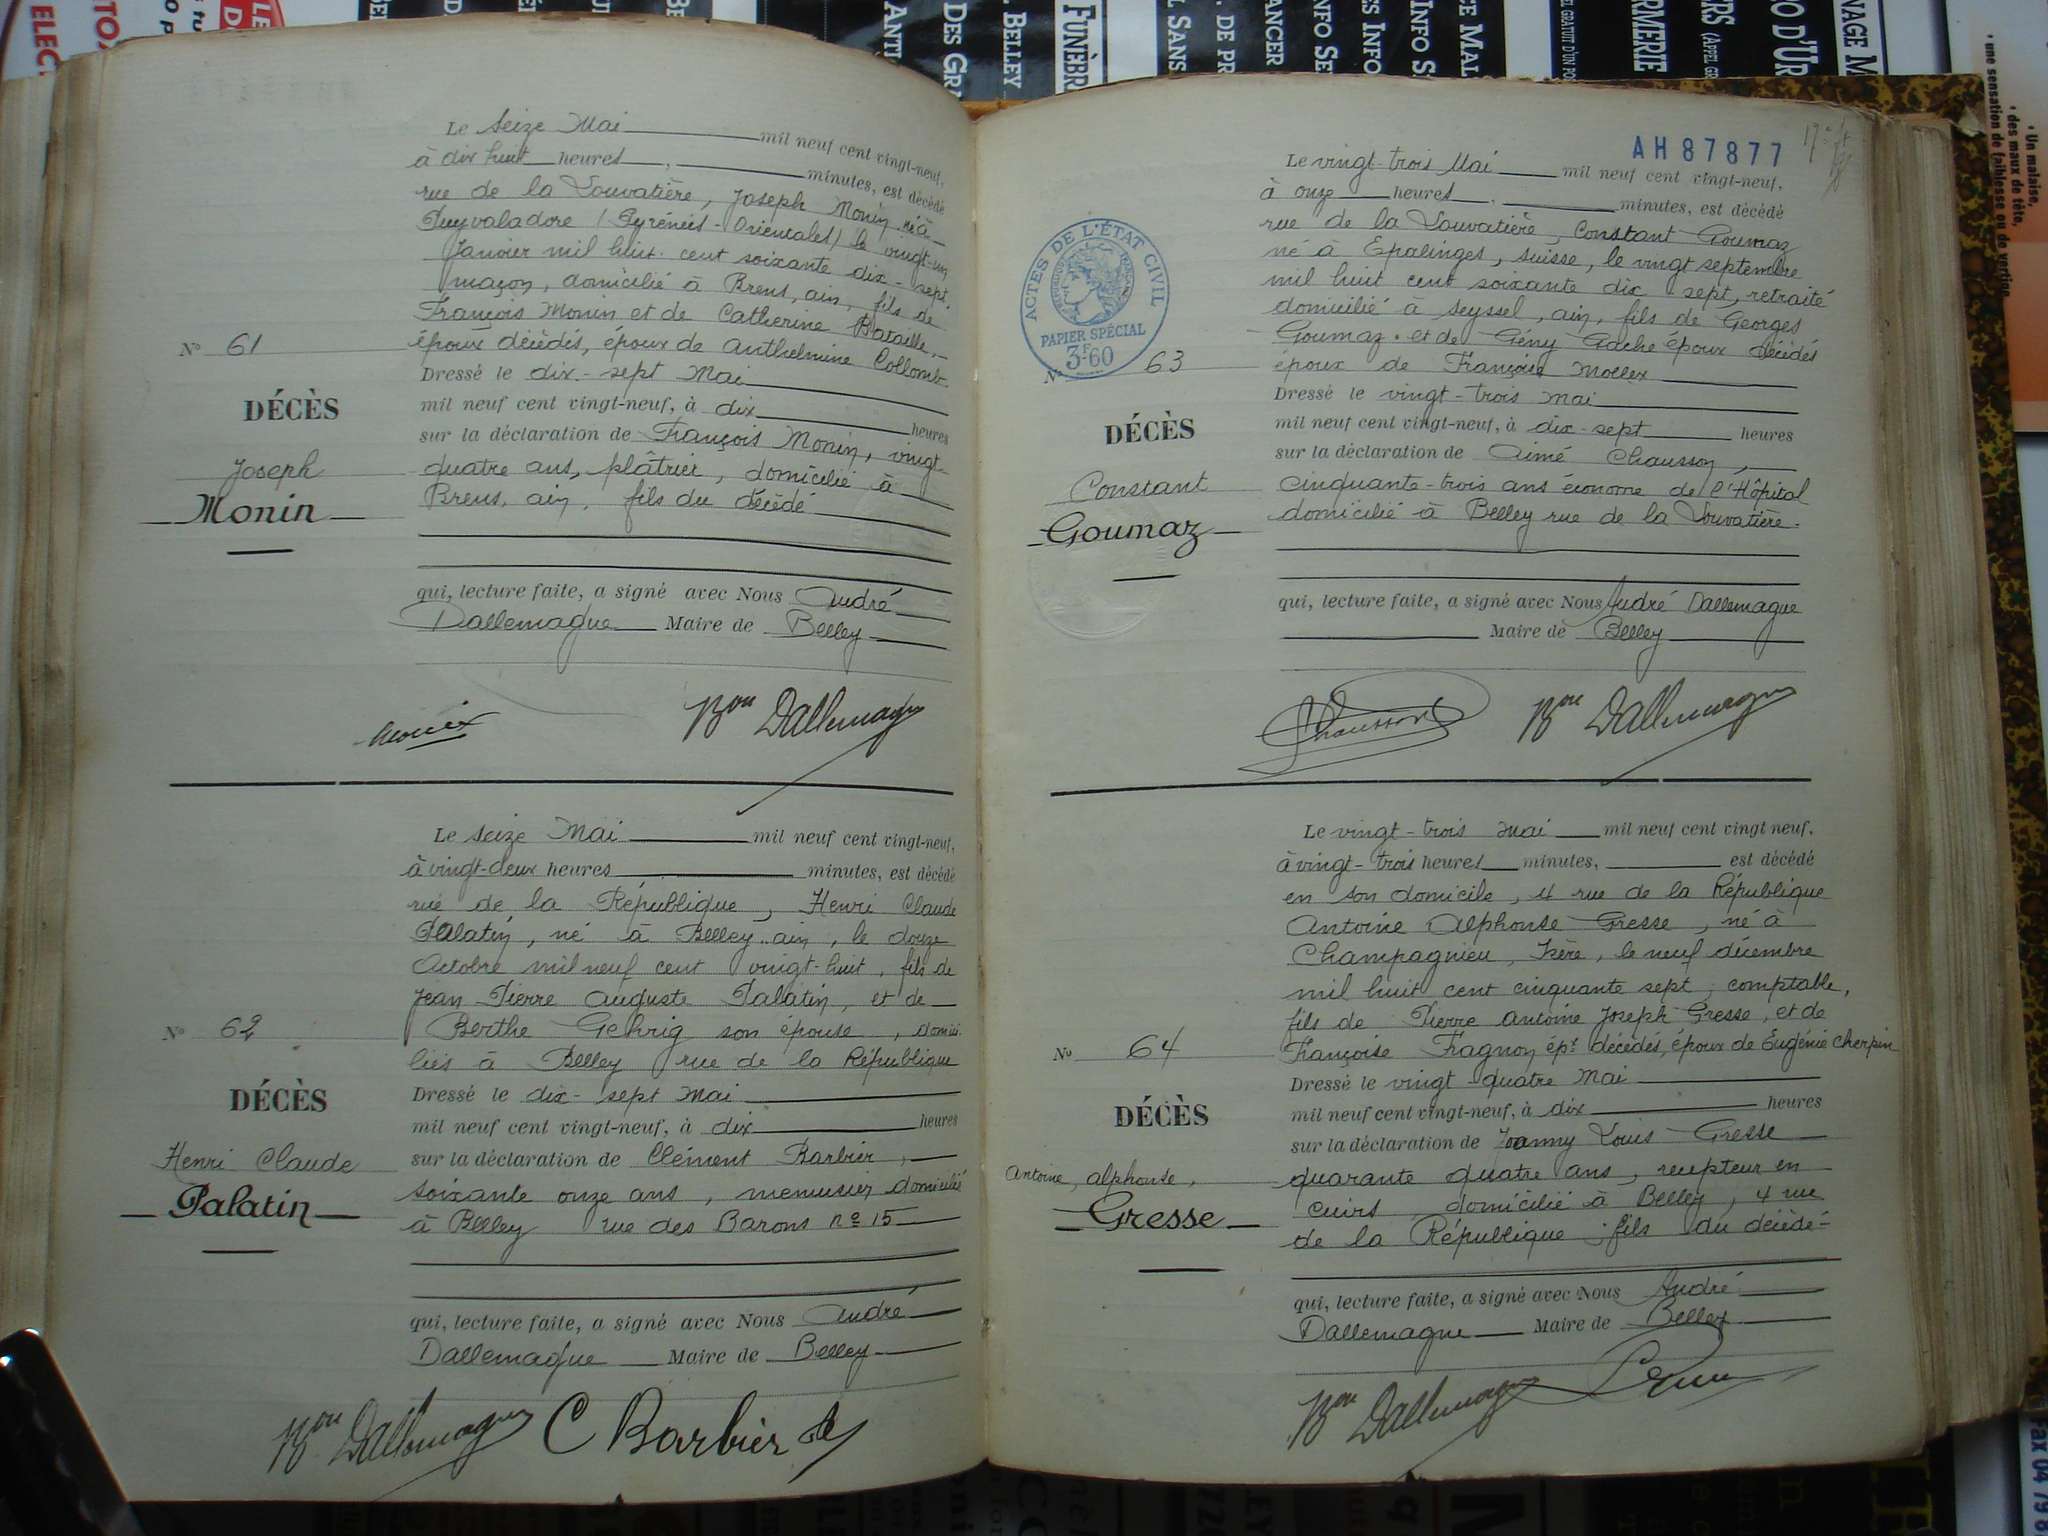 Le Seize Mai mil neuf cent vingt-neuf,
à dix huit heures, minutes, est décédé
rue de la Louvatière, Joseph Monin, né à
Puyvaladore (Pyrénées-Orientales) le vingt-un
Janvier mil huit cent soixante dix-sept,
maçon, domicilié à Brens, ain, fils de
François Monin et de Catherine Bataille,
époux décédés, époux de Anthelmine Collomb.
Nº 61
DÉCÈS
Joseph
Monin
Dressé le dix-sept Mai
mil neuf cent vingt-neuf, à dix heures
sur la déclaration de François Monin, vingt-
quatre ans, plâtrier, domicilié à
Brens, ain, fils du décédé
qui, lecture faite, a signé avec Nous André
Dallemagne Maire de Belley
Bon Dallemagne
Le Seize Mai mil neuf cent vingt-neuf,
à vingt-deux heures minutes, est décédé
rue de la République, Henri Claude
Palatin, né à Belley, ain, le douze
Octobre mil neuf cent vingt-huit, fils de
Jean Pierre Auguste Palatin, et de
Berthe Gehrig son épouse, domici-
liés à Belley rue de la République
Nº 62
DÉCÈS
Henri Claude
Palatin
Dressé le dix-sept Mai
mil neuf cent vingt-neuf, à dix heures
sur la déclaration de Clément Barbier,
soixante onze ans, menuisier domicilié
à Belley rue des Barons nº 15
qui, lecture faite, a signé avec Nous André
Dallemagne Maire de Belley
Bon Dallemagne C Barbier
AH87877
ACTES DE L'ÉTAT CIVIL
PAPIER SPÉCIAL
3F60
Le vingt-trois Mai mil neuf cent vingt-neuf,
à onze heures, minutes, est décédé
rue de la Louvatière, Constant Goumaz
né à Epalinges, suisse, le vingt septembre
mil huit cent soixante dix sept, retraité
domicilié à Seyssel, ain, fils de Georges
Goumaz et de Gény Gache époux décédés
époux de Françoise Mollex
Nº 63
DÉCÈS
Constant
Goumaz
Dressé le vingt-trois Mai
mil neuf cent vingt-neuf, à dix-sept heures
sur la déclaration de Aimé Chausson,
cinquante-trois ans économe de l'Hôpital
domicilié à Belley rue de la Louvatière.
qui, lecture faite, a signé avec Nous André Dallemagne
Maire de Belley
Chausson Bon Dallemagne
Le vingt-trois Mai mil neuf cent vingt neuf,
à vingt-trois heures minutes, est décédé
en son domicile, 4 rue de la République
Antoine Alphonse Gresse, né à
Champagnieu, Isère, le neuf décembre
mil huit cent cinquante sept, comptable,
fils de Pierre Antoine Joseph Gresse, et de
Françoise Fragnon épx décédés, époux de Eugénie Cherpin
Nº 64
DÉCÈS
Antoine, alphonse,
Gresse
Dressé le vingt quatre Mai
mil neuf cent vingt-neuf, à dix heures
sur la déclaration de Joanny Louis Gresse
quarante quatre ans, recepteur en
cuirs, domicilié à Belley, 4 rue
de la République, fils du décédé-
qui, lecture faite, a signé avec Nous André
Dallemagne Maire de Belley
Bon Dallemagne
DES GR
BELLEY
FUNÈBR
SANS
DE PR
ANCER
INFO SE
ES INFO
INFO S
CE MAL
RMERIE
NAGE M
• Un malaise,
• des maux de tête,
• une sensation de faiblesse ou de vertige